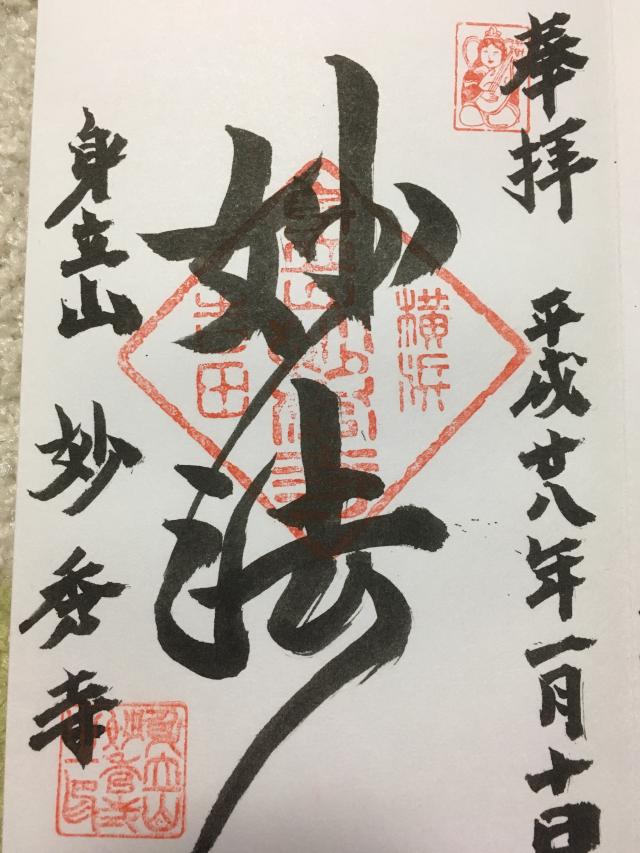 奉拝
平成廿八年一月十日
妙法
横浜
吉田
身立山
妙秀寺